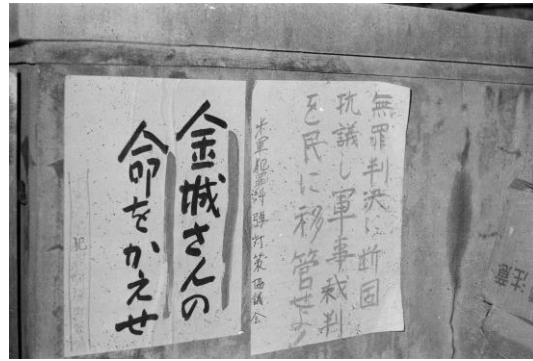 無罪判決に断固
抗議し軍事裁判
を民に移管せよ!
米軍犯罪糾弾対策協議会
金城さんの
命をかえせ
犯
注意